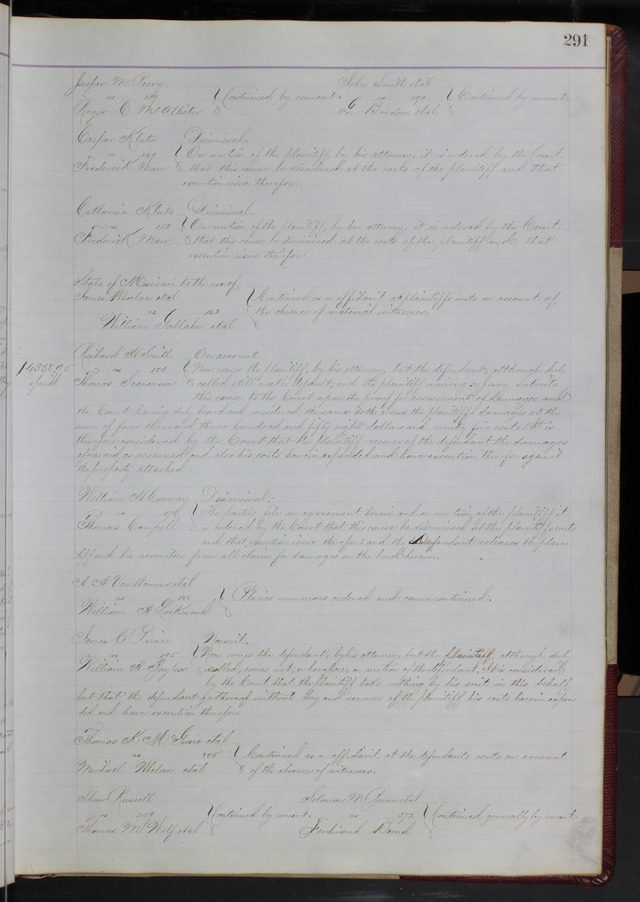 291
Jasper M Perry John Smith etal
vs 149 Continued by consent. vs 271 Continued by consent.
Roger C McAllister Breden etal
Caspar Klute Dismissal.
vs 149 On motion of the plaintiff, by his attorney, it is ordered by the Court
Frederick Maw that this cause be dismissed at the costs of the plaintiff and that
execution issue therefor.
Catharina Klute Dismissal.
vs 150 On motion of the plaintiff, by her attorney, it is ordered by the Court
Frederick Maw that this cause be dismissed at the costs of the plaintiff and that
execution issue therefor.
State of Missouri to the use of
James Whelan etal Continued as on affidavit at plaintiffs costs on account of
vs 162 the absence of material witnesses.
William Gallaher etal
Richard H Smith On account
vs 170 Now comes the plaintiff, by his attorney, but the defendant, although duly
Thomas called still makes default, and the plaintiff waiving a jury submits
this cause to the Court upon the proof for assessment of damages and
the Court having duly heard and considered the same doth assess the plaintiffs damages at the
sum of four thousand three hundred and fifty eight dollars and ninety five cents. It is
therefore considered by the Court that the plaintiff recover of the defendant the damages
aforesaid as assessed and also his costs herein expended and have execution therefor against
the property attached.
$4358.95
William H Conway Dismissal.
vs 176 The parties file an agreement herein and on motion of the plaintiff it
Thomas Campbell is ordered by the Court that this cause be dismissed at the plaintiffs costs
and that execution issue therefor: and the defendant releases the plain
tiff and his securities from all claim for damages on the bond herein.
A A Van Wormer etal
vs 188 Pluries summons ordered and cause continued.
William H Lockwood
James C Nonsuit.
vs 195 Now comes the defendant, by his attorney, but the plaintiff, although duly
William H called, comes not; wherefore, on motion of the defendant, it is considered
by the Court that the plaintiff take nothing by his suit in this behalf,
but that the defendant go thereof without day and recover of the plaintiff his costs herein expen
ded and have execution therefor.
Thomas H etal
vs 205 Continued as on affidavit at the defendants costs on account
Michael Whelan etal of the absence of witnesses.
Russell Solomon M
vs 209 Continued by consent. vs 272 Continued generally by consent.
Thomas M Wolf etal Ferdinand